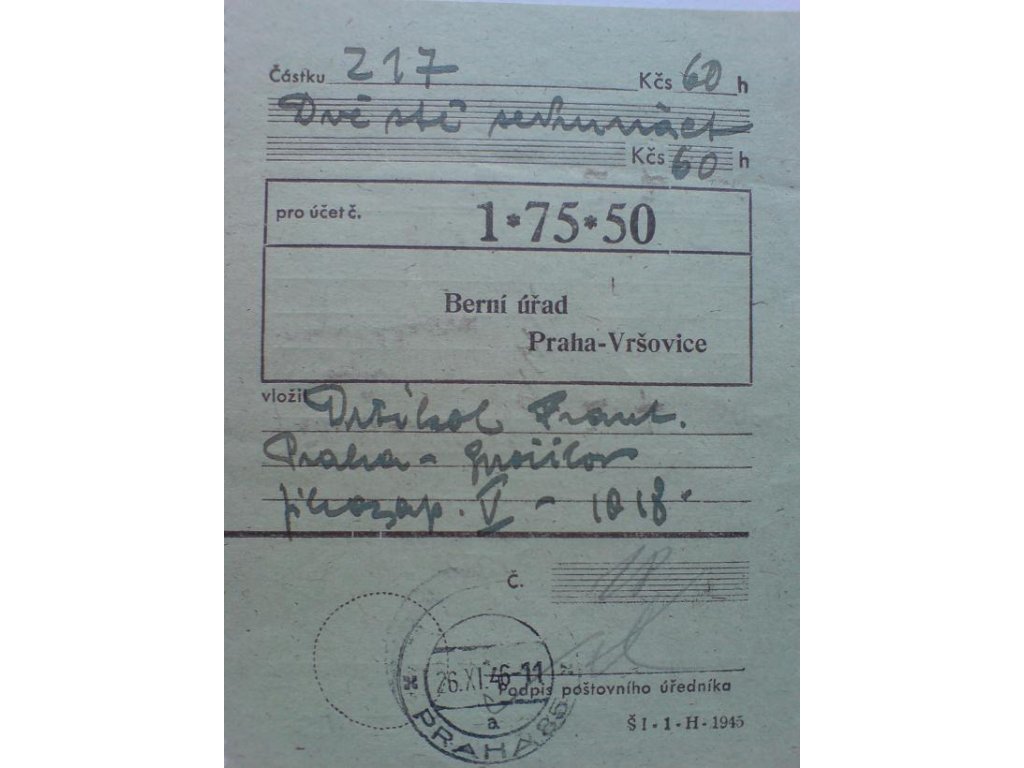 Částku 217 Kčs 60 h
Dvě stě sedmnáct
Kčs 60 h
pro účet č. 1*75*50
Berní úřad
Praha-Vršovice
vložil Drtikol Frant.
Praha - Spořilov
jihozáp. V - 1018
Č.
26.XI.46-11
Podpis poštovního úředníka
a
PRAHA 85
Š I - 1 - H - 1945